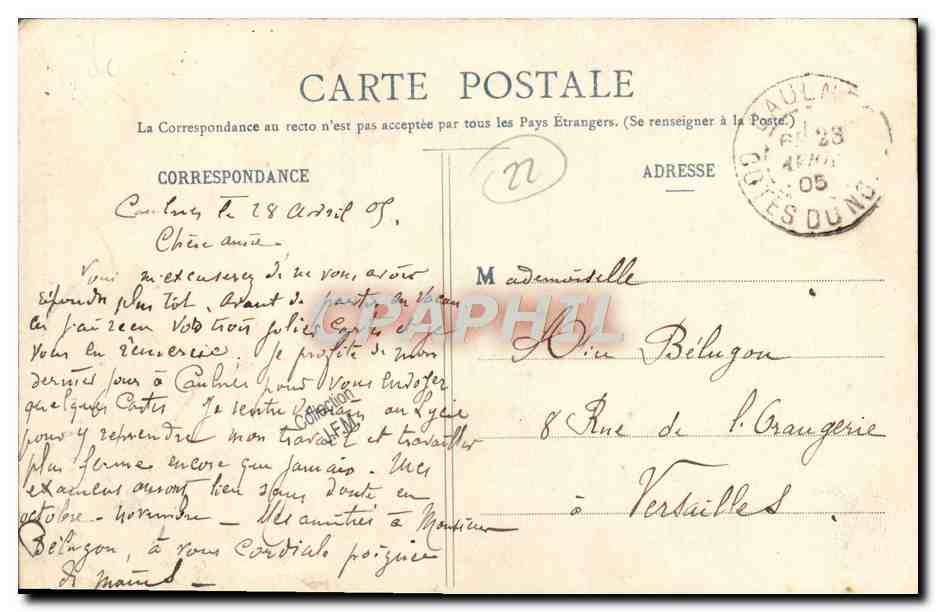 CARTE POSTALE
La Correspondance au recto n'est pas acceptée par tous les Pays Étrangers. (Se renseigner à la Poste.)
CORRESPONDANCE
ADRESSE
22
CAULN
28
05
COTES DU NO
Caulnes le 28 Avril 05.
Chère amie
Vous m'excuserez si ne vous avoir
répondu plus tôt. Avant de partir en vacan
ces j'ai reçu vos trois jolies cartes et je
vous en remercie. Je profite de mon
dernier jour à Caulnes pour vous envoyer
quelques cartes. Je rentre demain au Lycée
pour y reprendre mon travail et travailler
plus ferme encore que jamais. Mes
examens auront lieu sans doute en
octobre - novembre - Mes amitiés à Monsieur
Bélugon, à vous cordiale poignée
de mains -
Mademoiselle
Bélugon
8 Rue de l'Orangerie
à Versailles
CPAPHIL
Collection
V.F.M.